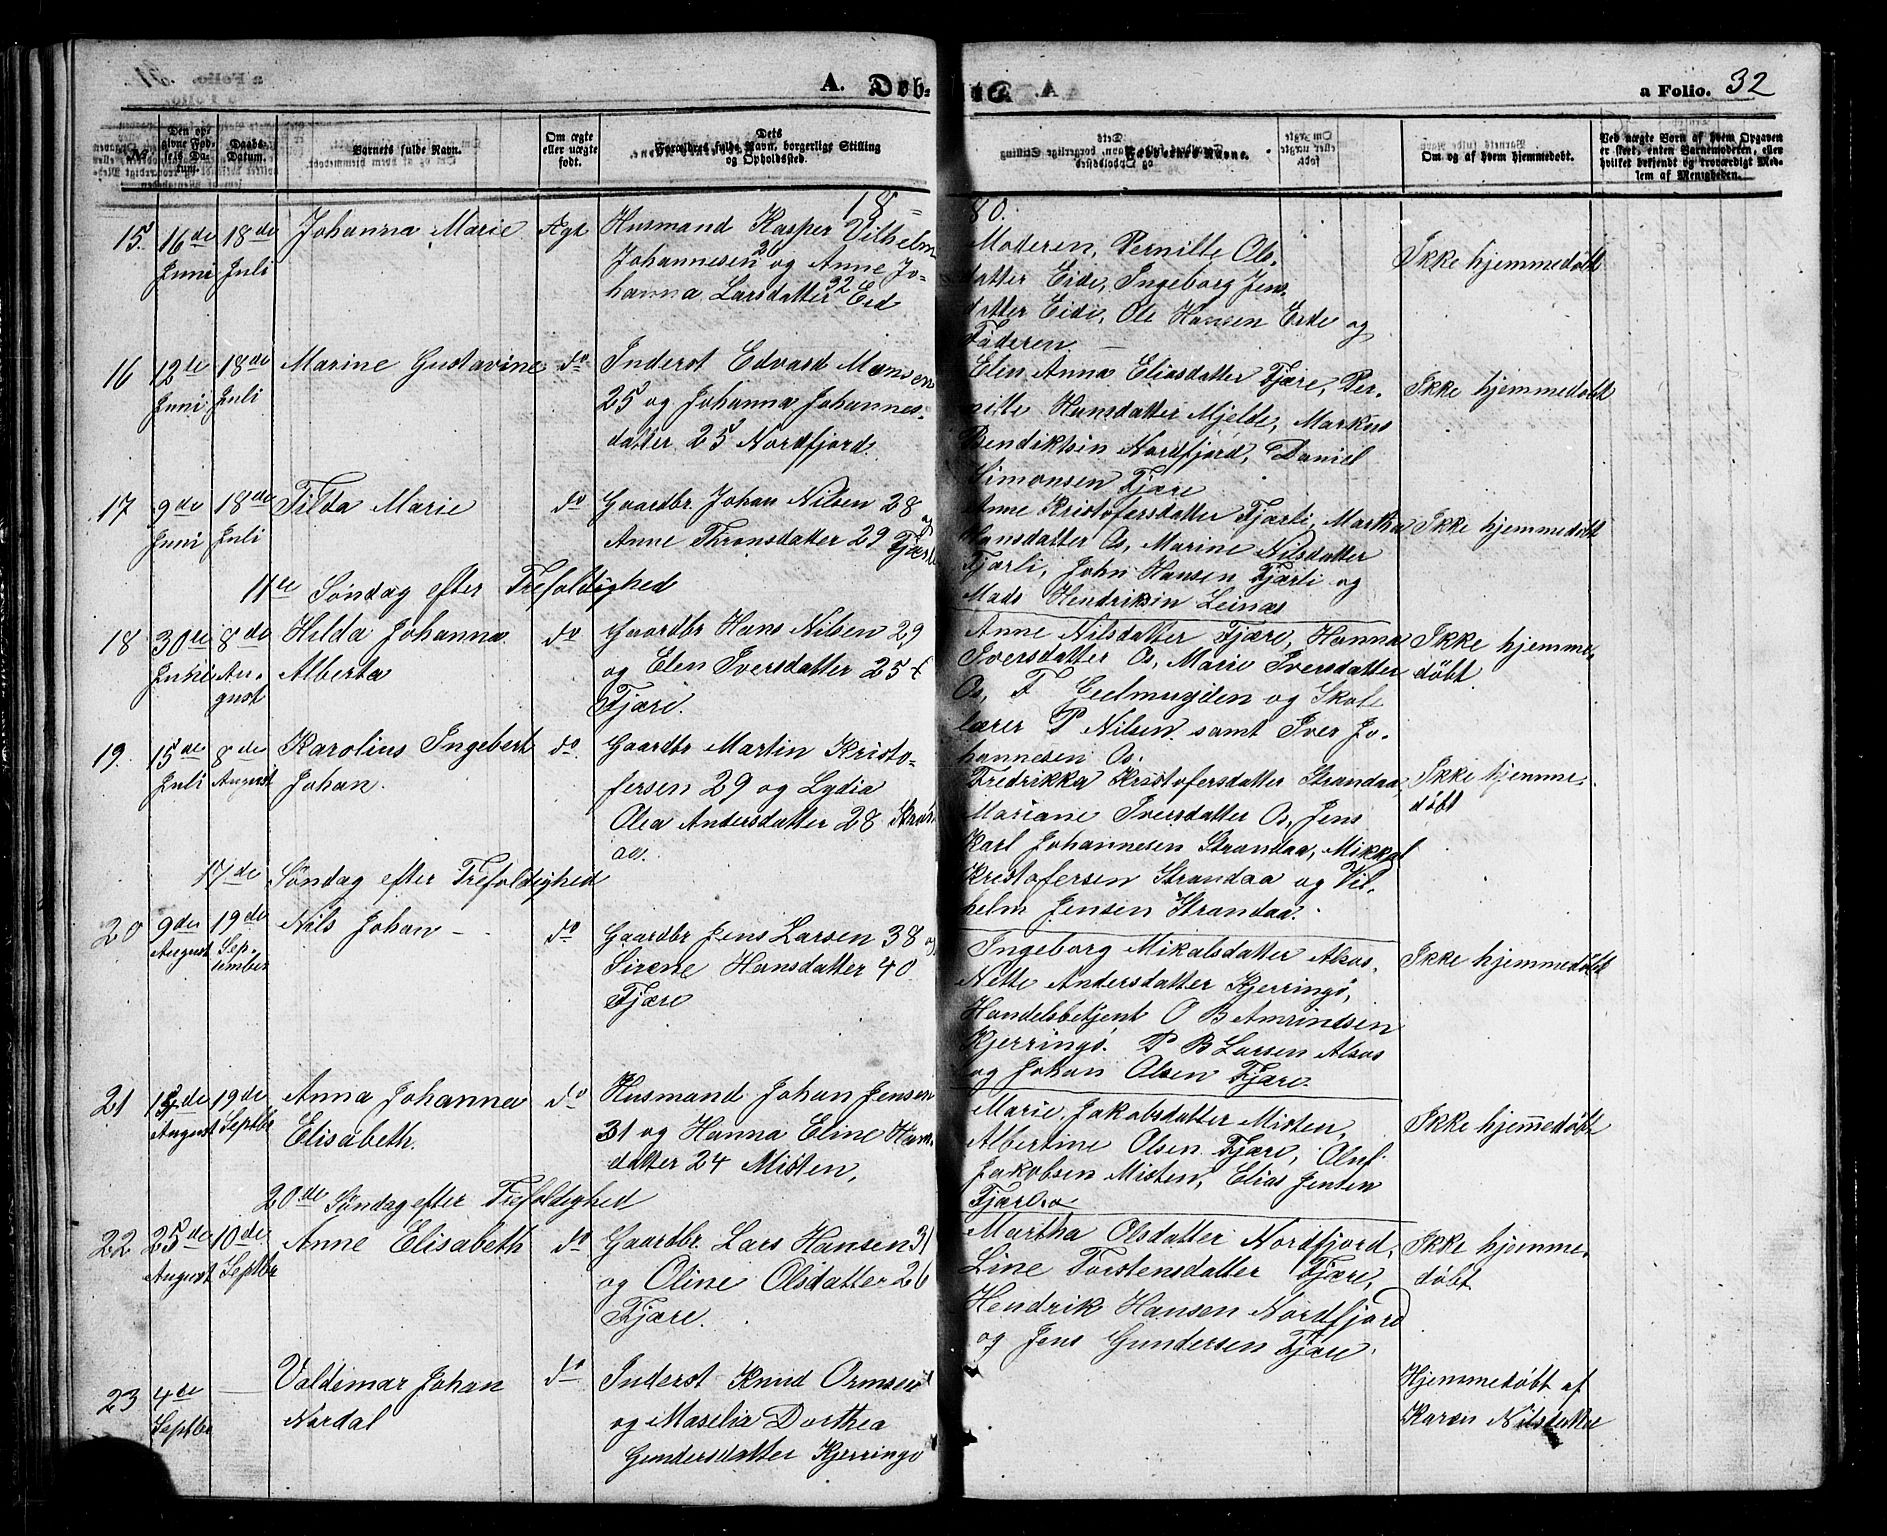 A. Døb-
a Folio. 32
No.
Den opgivne Fødsels Datum.
Daabs-Datum.
Barnets fulde Navn.
Om ægte eller uægte født.
Forældres fulde Navn, borgerlige Stilling og Opholdssted.
Faddernes Navne.
Om og af hvem hjemmedøbt.
Ved uægte Barn af hvem Opgaven er skeet, enten Barnemoderen, eller hvilket bekjendt og troværdigt Medlem af Menigheden.
18-
80.
15. 16de Juni 18de Juli Johanna Marie Ægt
Husmand Kasper Vilhelm
Johannesen 26 og Anne Jo-
hanna Larsdatter 32 Eid
Moderen, Pernille Ols-
datter Eide, Ingeborg Jens-
datter Eide, Ole Hansen Eide og
Faderen
Ikke hjemmedøbt
16 12te Juni 18de Juli Marine Gustavine do
Inderst Edvard Monsen
25 og Johanna Johannes-
datter 25 Nordfjord.
Elen Anna Eliasdatter Fjære, Per-
nille Hansdatter Mjelde, Markus
Bendiktsen Nordfjord, Daniel
Simonsen Fjære
Ikke hjemmedøbt
17 9de Juni 18de Juli Tilda Marie do
Gaardbr. Johan Nilsen 28 og
Anne Thronsdatter 29 Fjærli
Anne Kristofersdatter Fjærli, Martha
Hansdatter Os, Marine Nilsdatter
Fjærli, John Hansen Fjærli og
Mads Hendriksen Leinæs
Ikke hjemmedøbt
11te Søndag efter Trefoldighed
18 30te 8de August Hilda Johanna do
Alberta
Gaardbr Hans Nilsen 29
og Elen Iversdatter 25
Fjære.
Anne Nilsdatter Fjære, Hanna
Iversdatter Os, Marie Iversdatter
Os, F Geelmuyden og Skole
lærer P Nilsen samt Iver Jo-
hannesen Os.
Ikke hjemme-
døbt
19. 15de Juli 8de August Karolius Ingebert do.
Johan.
Gaardbr Martin Kristo-
fersen 29 og Lydia
Olea Andersdatter 28 Stran-
aa.
Fredrikka Kristofersdatter Strandaa,
Mariane Iversdatter Os, Jens
Karl Johannesen Strandaa, Mikkal
Kristofersen Strandaa og Vil-
helm Jensen Strandaa.
Ikke hjemme-
døbt
17de Søndag efter Trefoldighed
20 9de August 19de September Nils Johan - do
Gaardbr Jens Larsen 38 og
Sirene Hansdatter 40
Fjære
Ingeborg Mikalsdatter Alsos,
Nette Andersdatter Kjerringø,
Handelsbetjent O B Amrindsen
Kjerringø. P B Larsen Alsos
og Johan Olsen Fjære.
Ikke hjemmedøbt
21 August 19de Septbr Anna Johanna do
Elisabeth.
Husmand Johan Jensen
31 og Hanna Eline Hans
datter 24 Misten,
Marie Jakobsdatter Misten,
Albertine Olsen Fjære, Oluf
Jakobsen Misten, Elias Jensen
Ikke hjemmedøbt
20de Søndag efter Trefoldighed
22 25de August 10de Septbr Anne Elisabeth do
Gaardbr. Lars Hansen 31
og Oline Olsdatter 26
Fjære.
Martha Olsdatter Nordfjord,
Line Torstensdatter Fjære,
Hendrik Hansen Nordfjord
og Jens Gundersen Fjære.
Ikke hjemme-
døbt
23 4de Septbr — Valdimar Johan do
Nordal
Inderst Knud Ormsen
og Maselia Dorthea
Gundersdatter Kjerringø
Hjemmedøbt af
Karen Nilsdatter